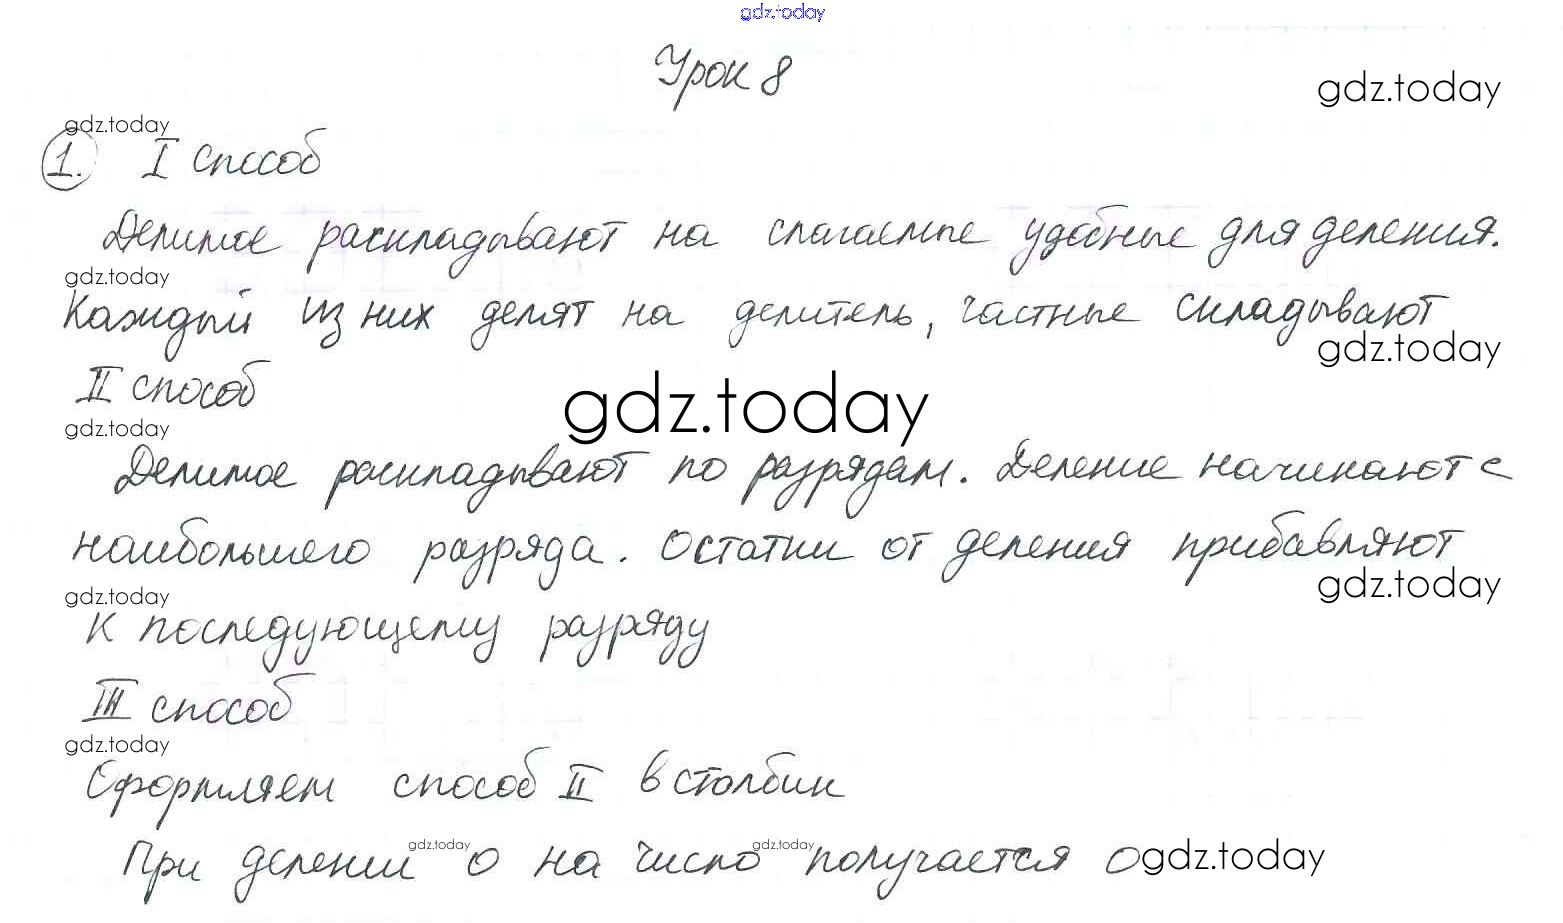 gdz.today
Урок 8
gdz.today
gdz.today
1. I способ
Делимое раскладывают на слагаемые удобные для деления.
gdz.today
Каждый из них делят на делитель, частные складывают
gdz.today
II способ
gdz.today
gdz.today
Делимое раскладывают по разрядам. Деление начинают с
наибольшего разряда. Остатки от деления прибавляют
gdz.today
gdz.today
к последующему разряду
III способ
gdz.today
Оформляем способ II в столбик
При делении 0 на число получается 0
gdz.today
gdz.today
gdz.today